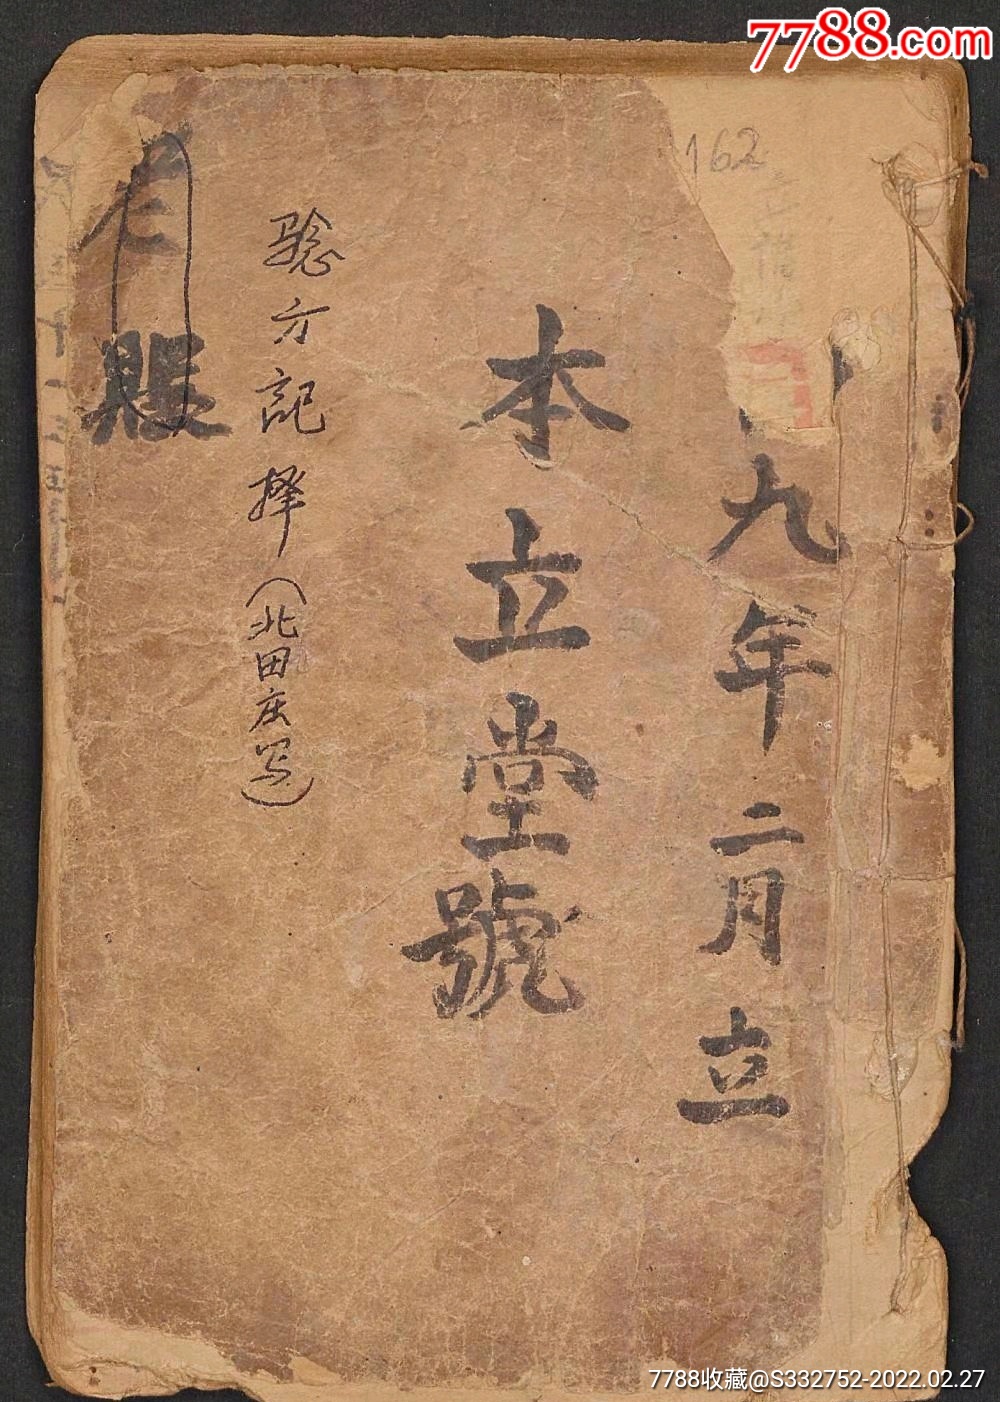 7788.com
162
九年二月立
本立堂號
騐方記择(北田庄写)
老賬
7788收藏@S332752-2022.02.27